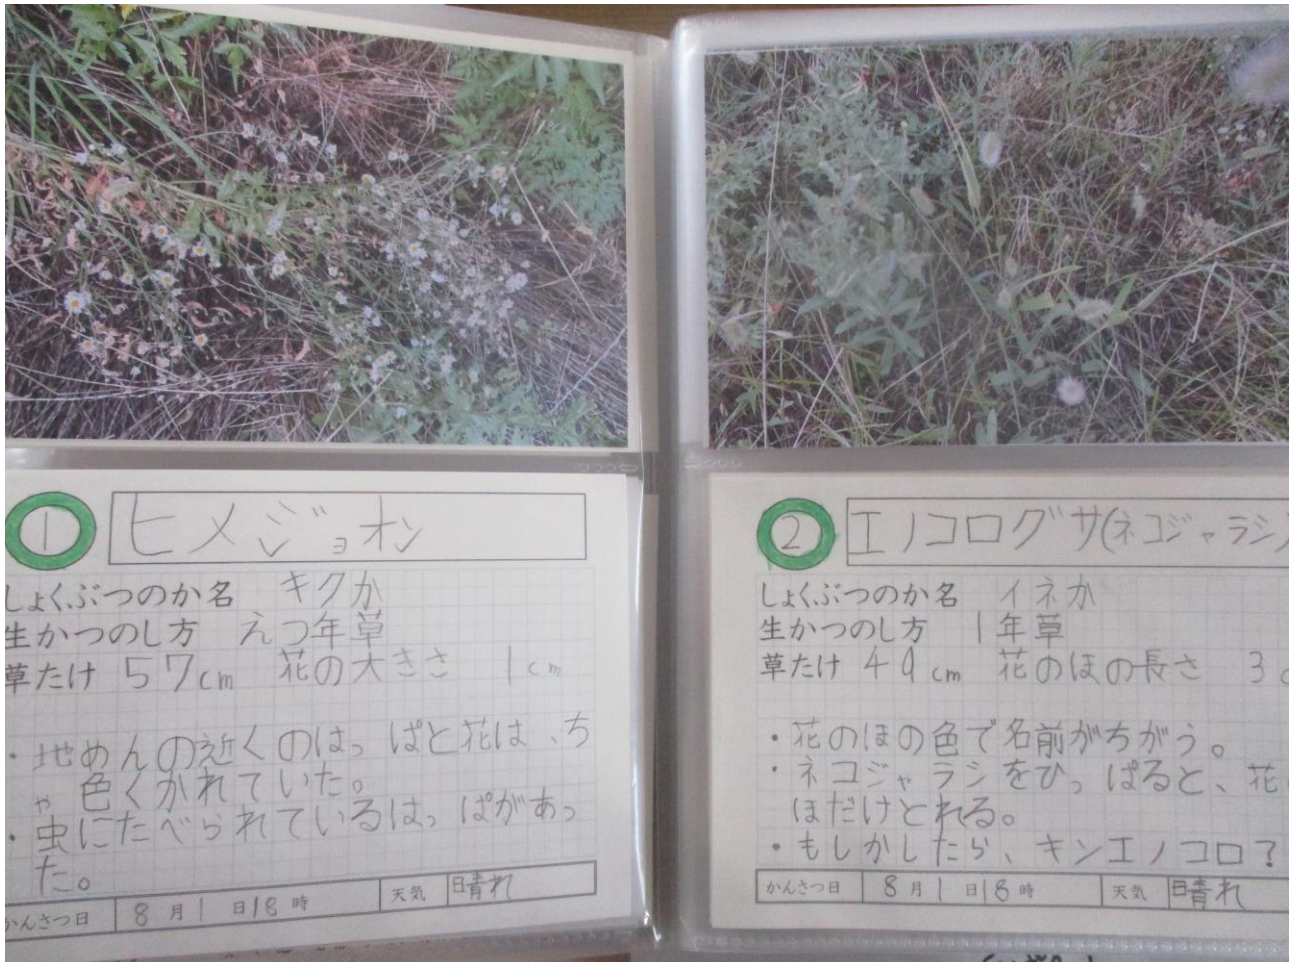 ① ヒメジョオン
しょくぶつのか名 キクか
生かつのし方 えつ年草
草たけ 57cm 花の大きさ 1cm
・地めんの近くのはっぱと花は、ち
ゃ色くかれていた。
・虫にたべられているはっぱがあっ
た。
かんさつ日 8月1日18時 天気 晴れ
② エノコログサ(ネコジャラシ)
しょくぶつのか名 イネか
生かつのし方 1年草
草たけ 49cm 花のほの長さ 3c
・花のほの色で名前がちがう。
・ネコジャラシをひっぱると、花
ほだけとれる。
・もしかしたら、キンエノコロ?
かんさつ日 8月1日18時 天気 晴れ